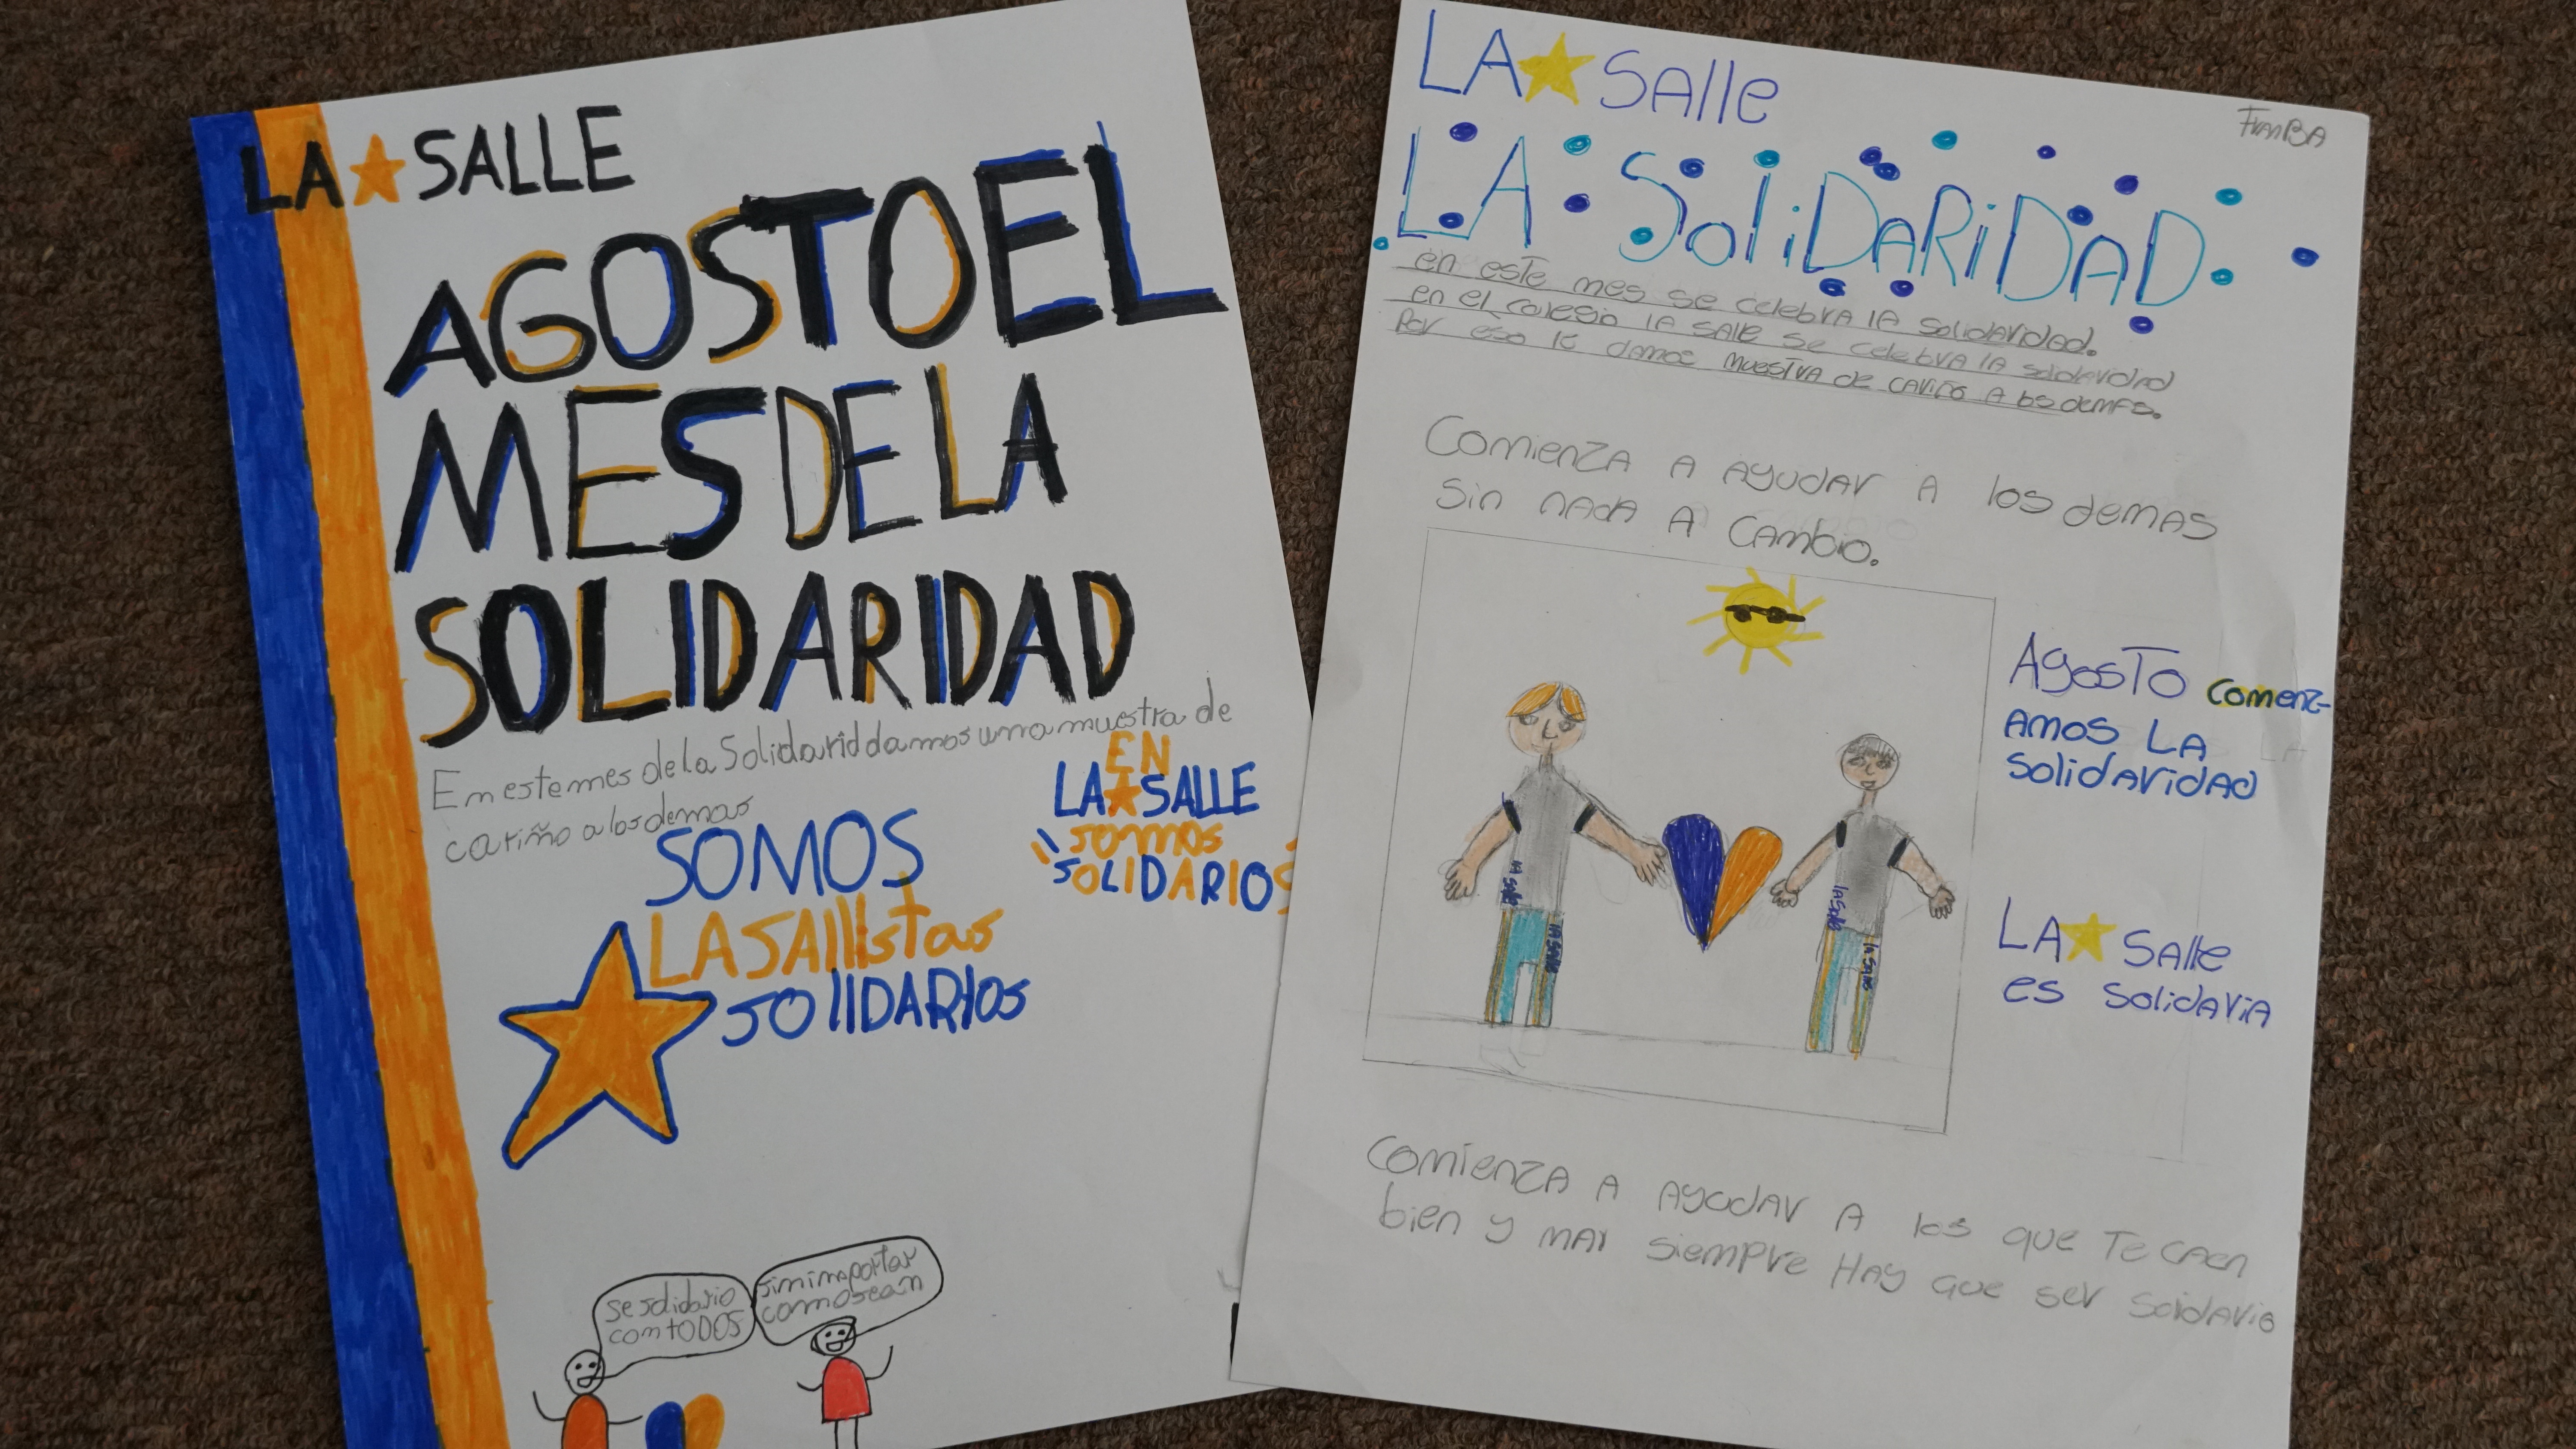 LA SALLE
AGOSTO EL
MES DE LA
SOLIDARIDAD
En este mes de la Solidarid damos una muestra de
cariño a los demas
EN
LA SALLE
somos
SOLIDARIOS
SOMOS
LASAllistas
SOlIDARIOS
se solidario
con TODOS
sin importar
como sean
LA SAlle
FranBA
LA SoliDARiDAD
en este mes se celebra lA solidaridad.
en el colegio lA SAlle se celebra lA solidaridad
Por eso le damos muestra de cariño A los demas.
Comienza A Ayudar A los demas
sin nada A cambio.
Agosto comenz-
Amos LA
solidaridad
LA SAlle
es solidaria
lA Salle
lA Salle
lA Salle
lA Salle
Comienza A Ayudar A los que Te caen
bien y mal siempre Hay que ser solidario